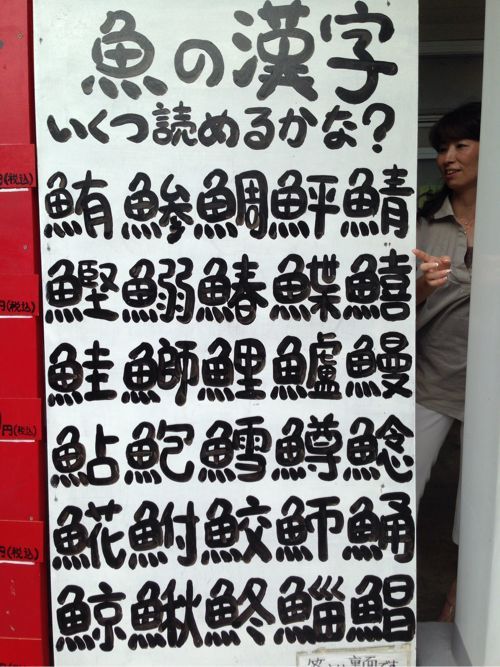 魚の漢字
いくつ読めるかな?
鮪鯵鯛鮃鯖
鰹鰯鰆鰈鱚
鮭鰤鯉鱸鰻
鮎鮑鱈鱒鯰
𩸽鮒鮫魳鯒
鯨鰍鮗鯔鯧
円(税込)
円(税込)
円(税込)
円(税込)
裏面